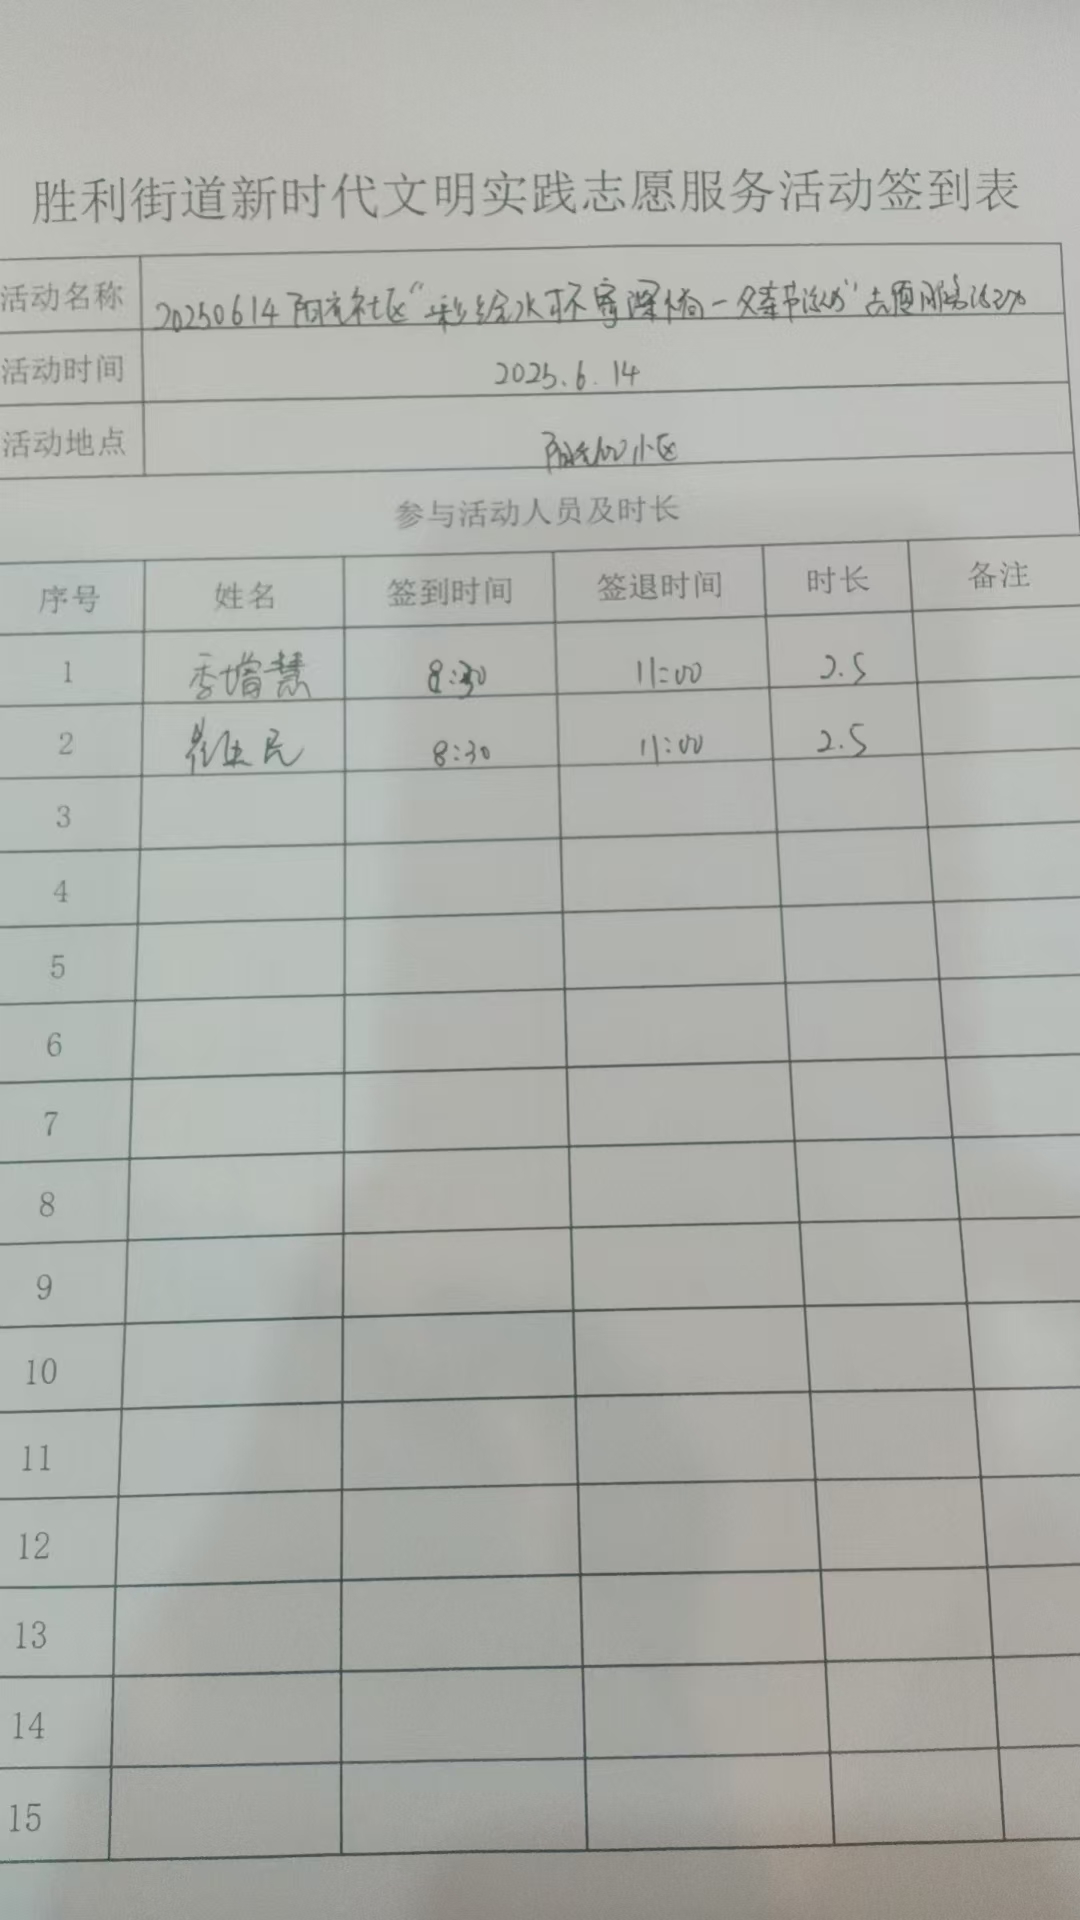 胜利街道新时代文明实践志愿服务活动签到表
活动名称 20250614阳光社区“彩绘水杯寄深情一父亲节活动”志愿服务活动
活动时间 2025.6.14
活动地点 阳光100小区
参与活动人员及时长
序号 姓名 签到时间 签退时间 时长 备注
1 季增慧 8:30 11:00 2.5
2 民 8:30 11:00 2.5
3
4
5
6
7
8
9
10
11
12
13
14
15